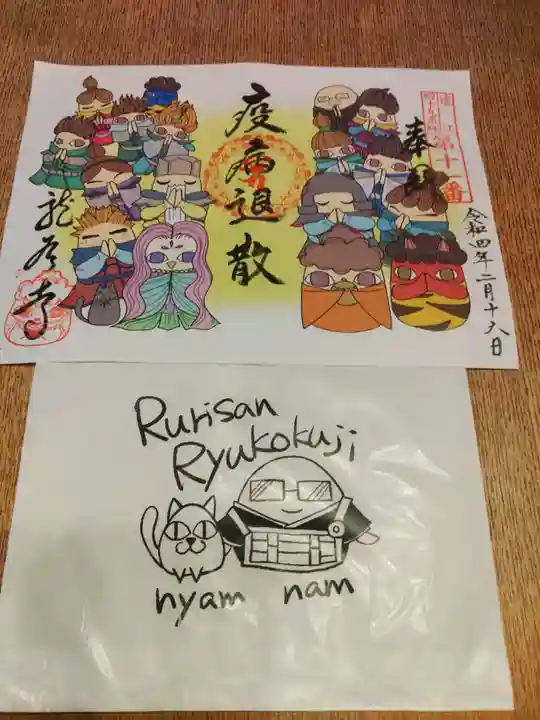 奉拝
第十一番
疫病退散
令和四年二月十八日
龍谷寺
Rurisan
Ryukokuji
nyam nam